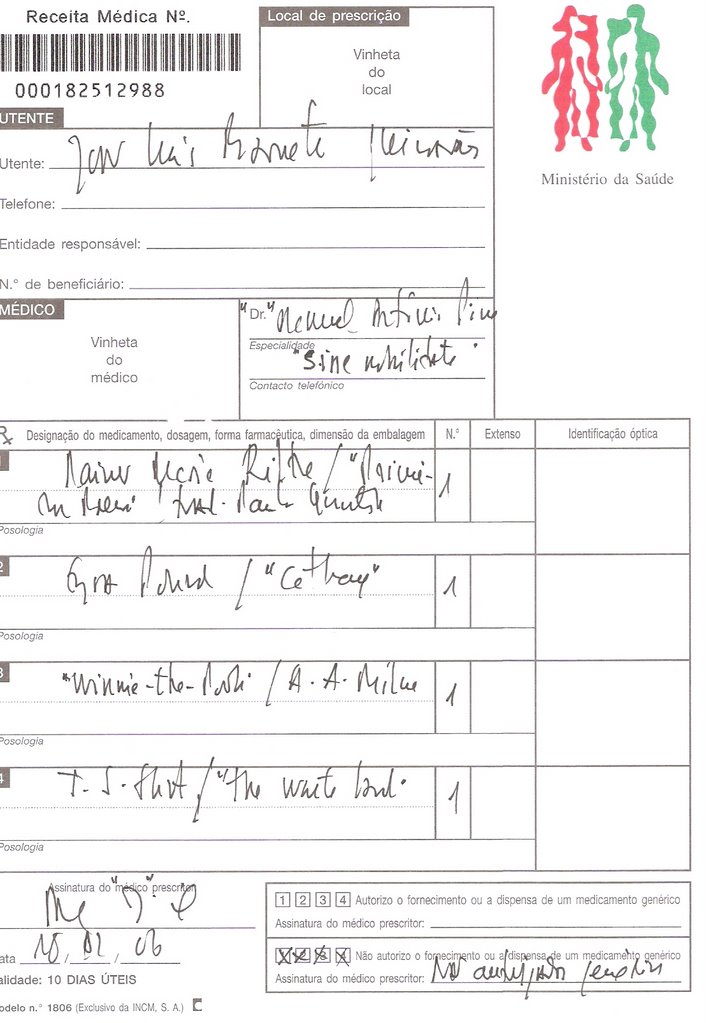 Receita Médica Nº.
000182512988
Local de prescrição
Vinheta
do
local
Ministério da Saúde
UTENTE
Utente: José Luis
Telefone:
Entidade responsável:
N.° de beneficiário:
MÉDICO
Vinheta
do
médico
"Dr." Manuel António Pina
Especialidade
"sine nobilitate"
Contacto telefónico
Rx Designação do medicamento, dosagem, forma farmacêutica, dimensão da embalagem N.° Extenso Identificação óptica
1
Rainer Maria Rilke / 1
trad. Paulo Quintela
Posologia
2
Ezra Pound / "Cathay" 1
Posologia
3
"Winnie-the-Pooh" / A. A. Milne 1
Posologia
4
T. S. Eliot / "The waste land" 1
Posologia
Assinatura do "médico" prescritor
ata
alidade: 10 DIAS ÚTEIS
odelo n.° 1806 (Exclusivo da INCM, S. A.)
1 2 3 4 Autorizo o fornecimento ou a dispensa de um medicamento genérico
Assinatura do médico prescritor:
1 2 3 4 Não autorizo o fornecimento ou a dispensa de um medicamento genérico
Assinatura do médico prescritor: